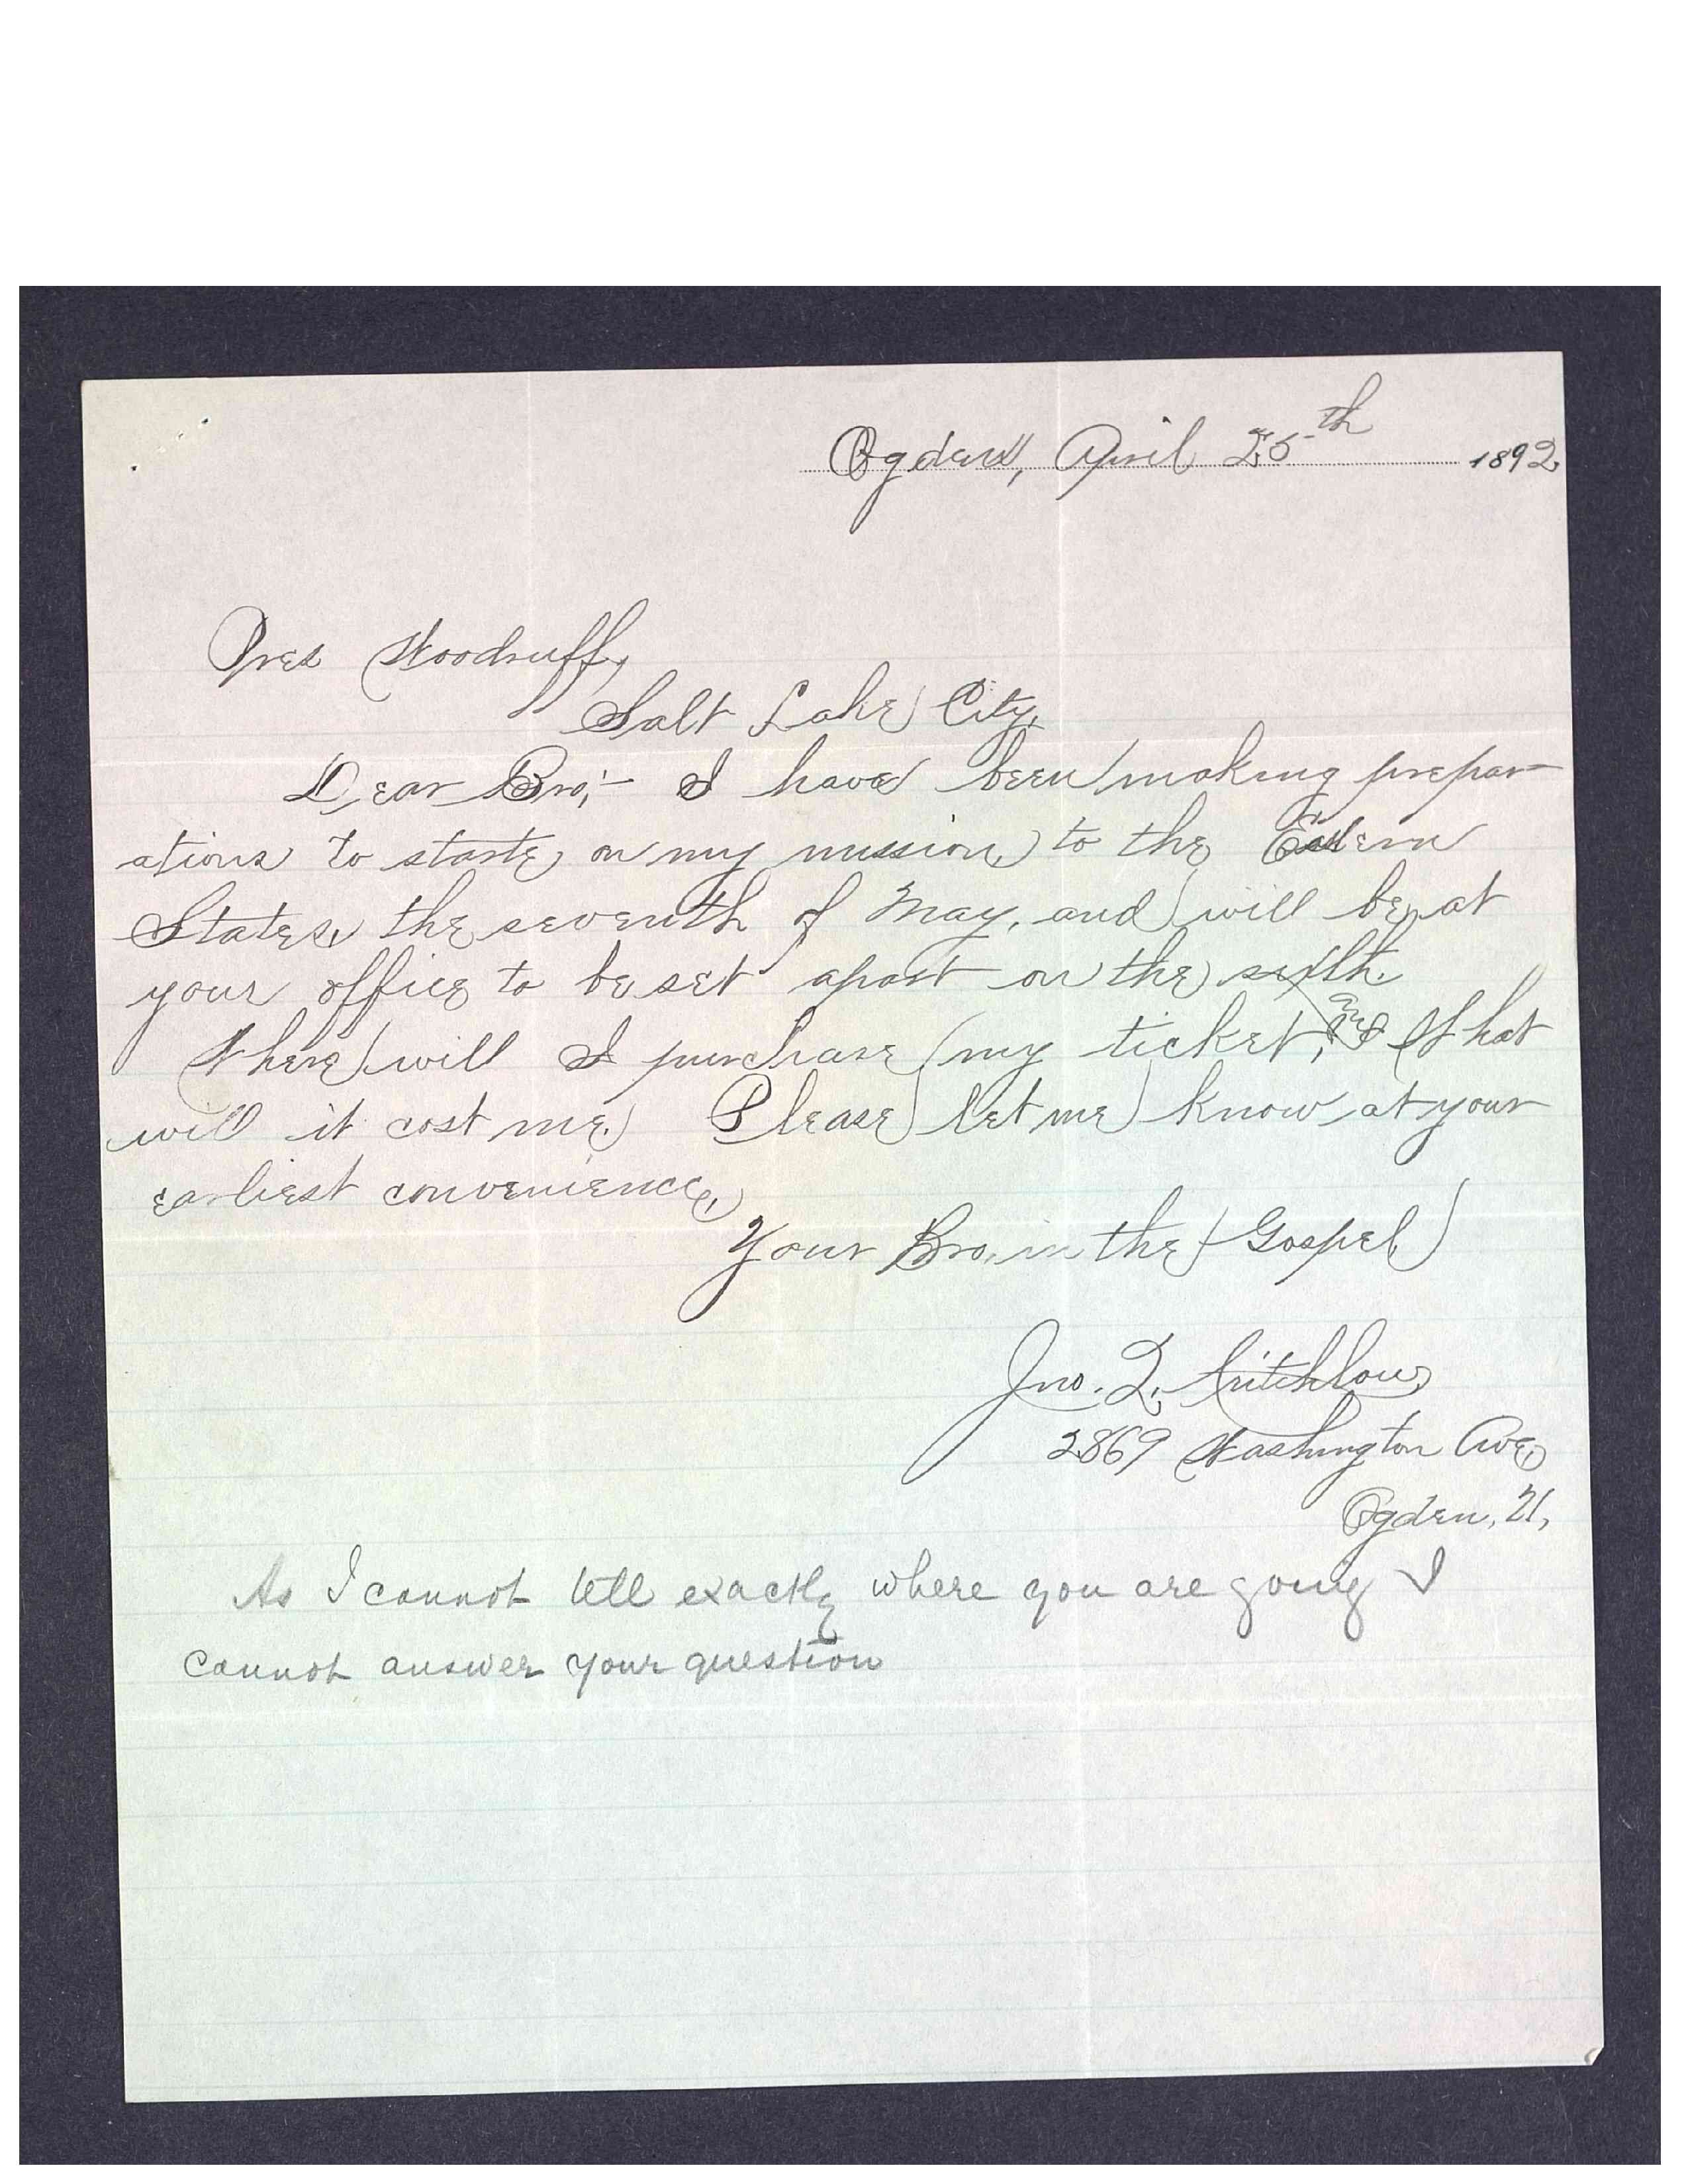 Ogden, April 25th 1892
Pres Woodruff,
Salt Lake City,
Dear Bro;- I have been making prepar-
ations to starte on my mission to the Eastern
States, the seventh of May, and will be at
your office to be set apart on the sixth.
Where will I purchase my ticket, and What
will it cost me. Please let me know at your
earliest convenience,
Your Bro, in the Gospel
Jno. Q. Critchlow,
2869 Washington Ave,
Ogden, Ut,
As I cannot tell exactly where you are going I
cannot answer your question